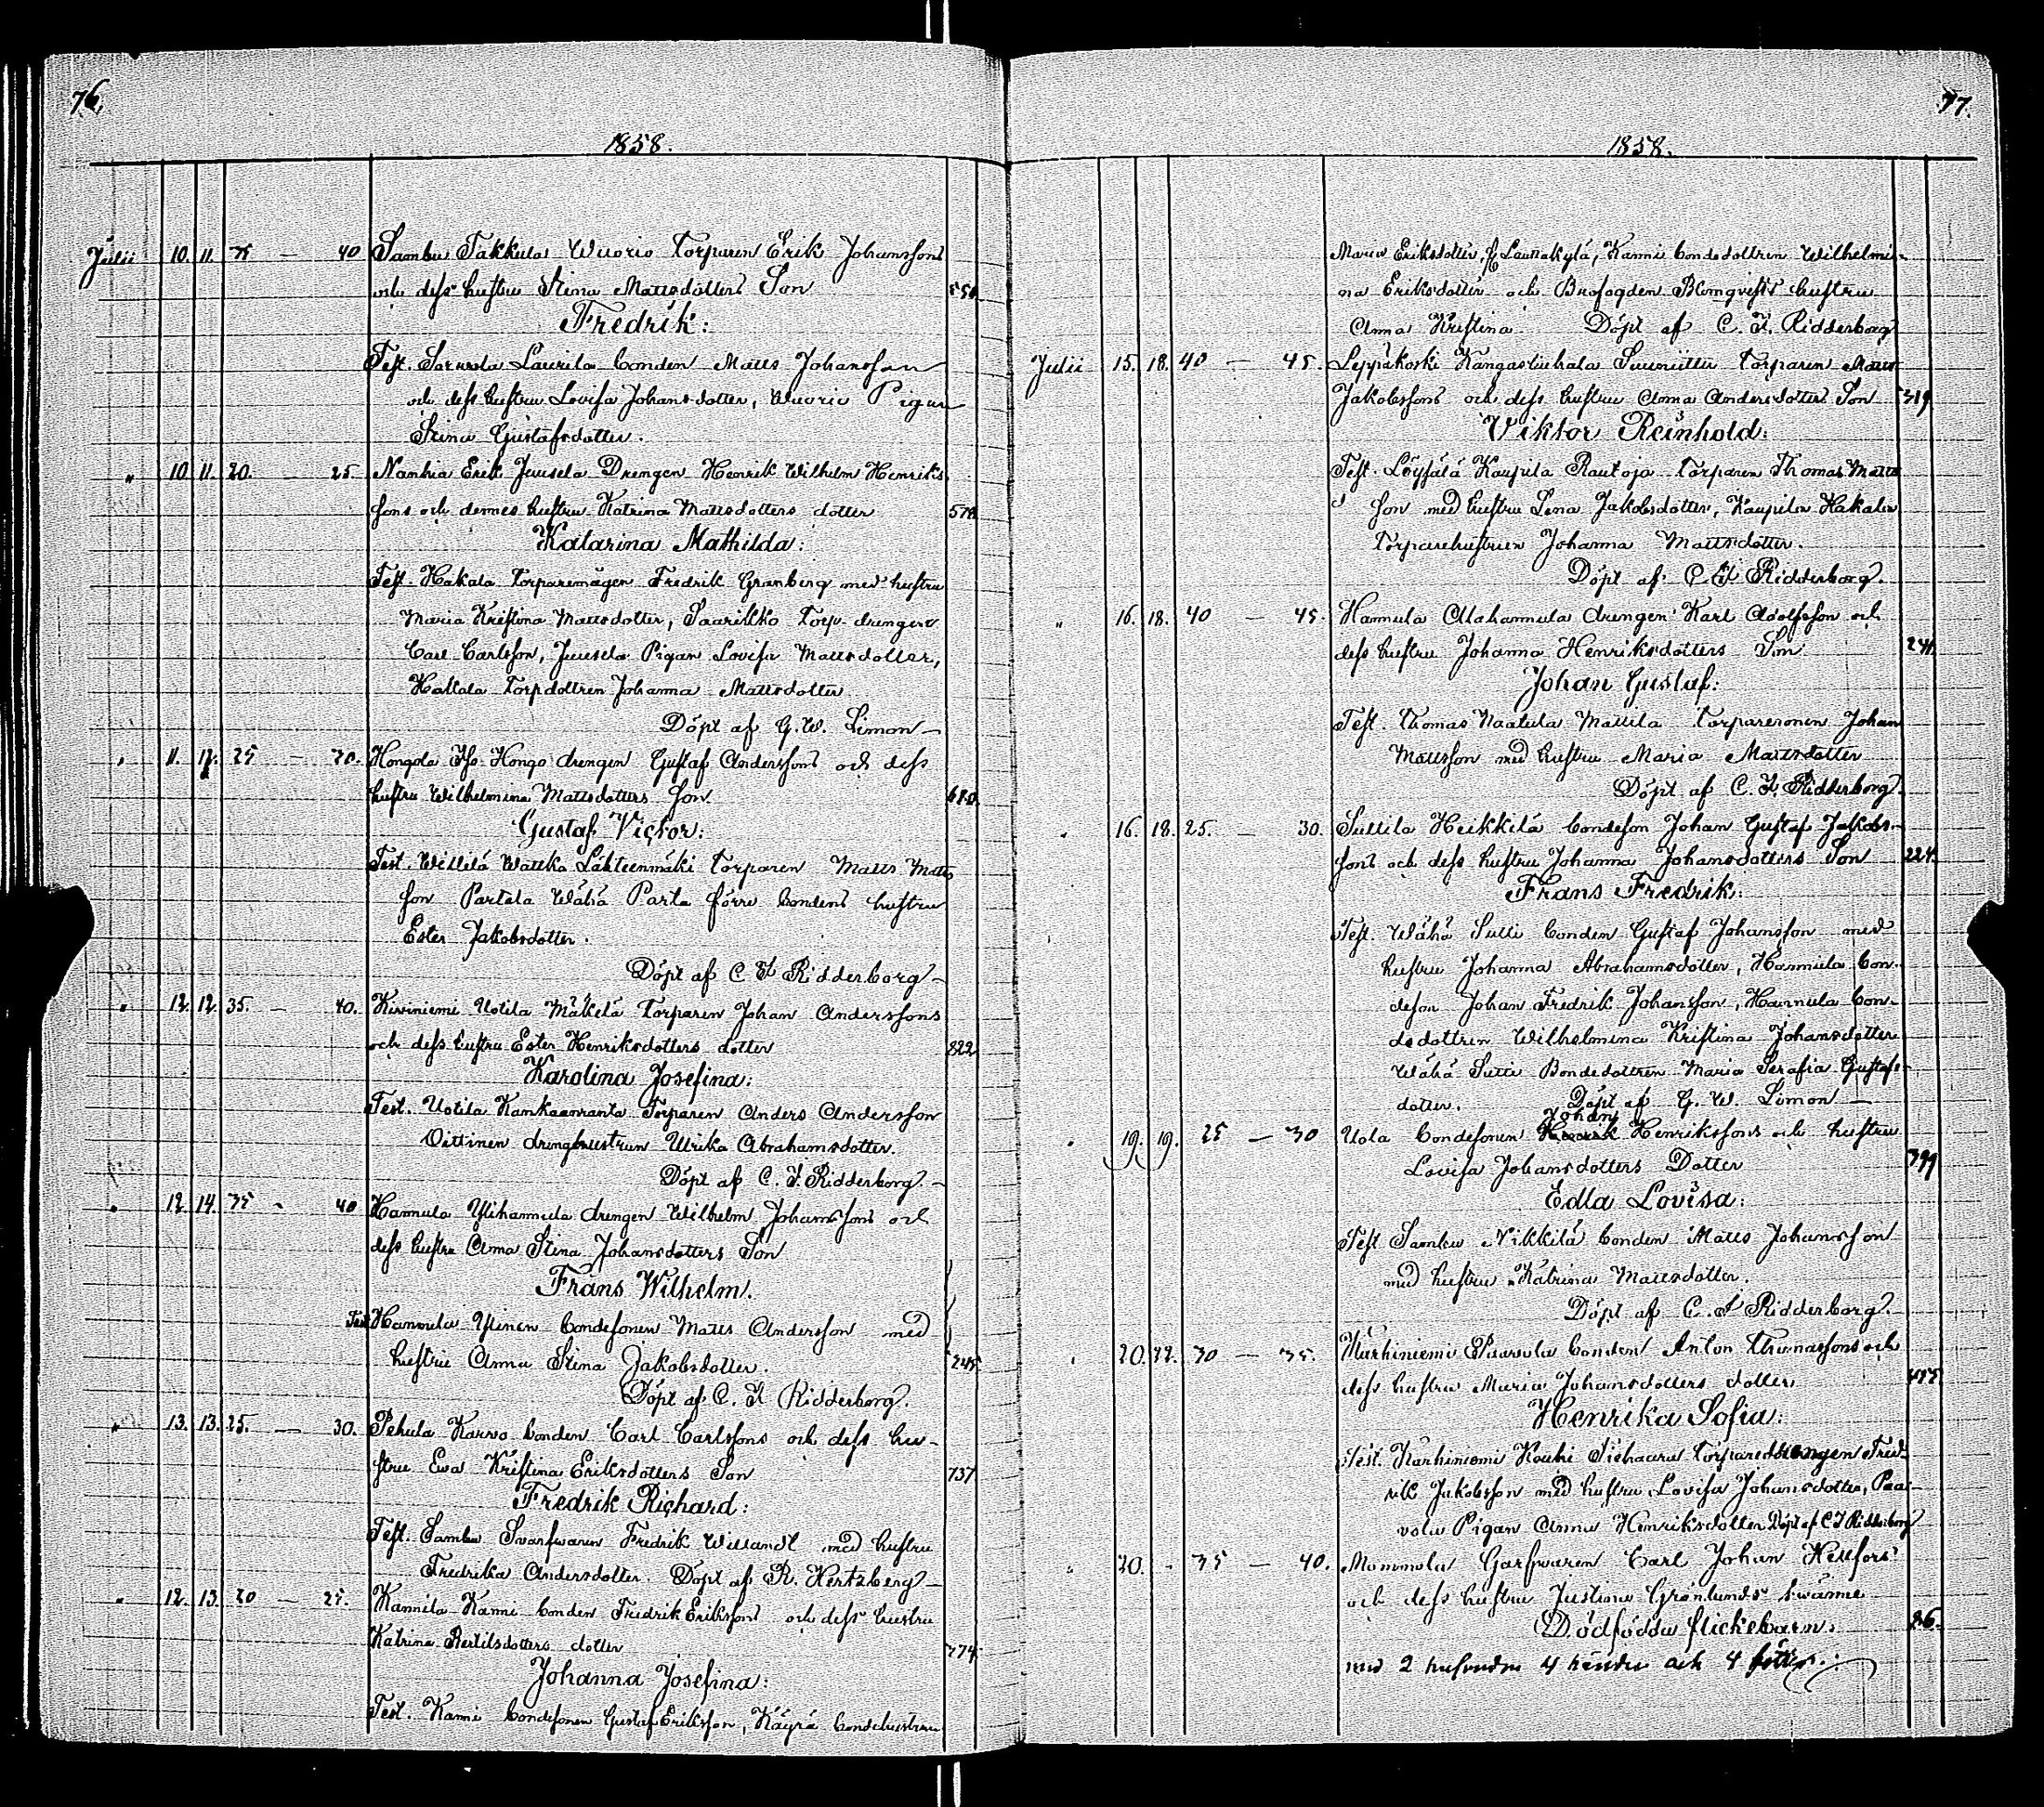 76.
1858.
Julii 10. 11. 35 — 40 Sambu Takkula Wuorio Torparen Erik Johanssons
och dess hustru Stina Mattsdotters Son 550
Fredrik:
Test. Laurila bonden Matts Johansson
och dess hustru Lovisa Johansdotter, Wuorio Pigan
Stina Gustafsdotter.
" 10 11. 20. — 25 Nanhia Erik Juusela Drengen Henrik Wilhelm Henriks-
sons och dennes hustru Katrina Mattsdotters dotter 578
Katarina Mathilda:
Test. Hakala torparemågen Fredrik Granberg med hustru
Maria Kristina Mattsdotter, Torp. drengen
Carl Carlsson, Juusela Pigan Lovisa Mattsdotter,
Hakala Torpdottren Johanna Mattsdotter
Döpt af G. W. Limon —
" 11. 12. 25 — 30. Hongola Iso-Hongo drengen Gustaf Anderssons och dess
hustru Wilhelmina Mattsdotters Son 680
Gustaf Victor:
Test. Willilä Wattka Lähteenmäki torparen Matts Matts
son Partala Wähä Parta förre bondens hustru
Ester Jakobsdotter.
Döpt af C F Ridderborg —
" 12. 12. 35. — 40. Kiviniemi Uotila Mäkelä torparen Johan Anderssons
och dess hustru Ester Henriksdotters dotter 822
Karolina Josefina:
Test. Uotila Kankaanranta Torparen Anders Andersson
Oittinen drenghustrun Ulrika Abrahamsdotter.
Döpt af C. F. Ridderborg. —
" 12. 14. 35 - 40 Hannula Ylihannula drengen Wilhelm Johanssons och
dess hustru Anna Stina Johansdotters Son
Frans Wilhelm.
Test Hannula Ylinen bondesonen Matts Andersson med
hustru Anna Stina Jakobsdotter. 245
Döpt af C. F. Ridderborg.
" 13. 13. 25. — 30. Pehula Karvo bonden Carl Carlssons och dess hu-
stru Eva Kristina Eriksdotters Son 737
Fredrik Richard:
Test. Sambu Svarfvaren Fredrik Willandt med hustru
Fredrika Andersdotter. Döpt af R. Hertzberg —
" 12. 13. 20 — 25. Kannila Kanni bonden Fredrik Erikssons och dess hustru
Katrina Bertilsdotters dotter 374
Johanna Josefina:
Test. Kanni bondesonen Gustaf Eriksson, Käyrä bondehustrun
77.
1858.
Maria Eriksdotter, fr Launakylä, Kanni bondedottren Wilhelmi-
na Eriksdotter och Brofogden Blomqvists hustru
Anna Kristina. Döpt af C. F. Ridderborg
Julii 15. 18. 40 — 45. Leppäkoski Kangastuhala torparen Matts
Jakobssons och dess hustru Anna Andersdotters Son 319
Viktor Reinhold:
Test. Löysälä Kaupila Rautoja torparen Thomas Matts
son med hustru Lena Jakobsdotter, Kaupila Hakala
torparehustrun Johanna Mattsdotter.
Döpt af C F Ridderborg.
" 16. 18. 40 — 45. Hannula Alahannula drengen Karl Adolfsson och
dess hustru Johanna Henriksdotters Son 241
Johan Gustaf:
Test. Thomas Naatula Mattila torparesonen Johan
Mattsson med hustru Maria Mattsdotter
Döpt af C. F. Ridderborg.
" 16. 18. 25. — 30. Suttila Heikkilä bondeson Johan Gustaf Jakobs-
sons och dess hustru Johanna Johansdotters Son 224.
Frans Fredrik:
Test. Wähä Sutti bonden Gustaf Johansson med
hustru Johanna Abrahamsdotter, Hannula bon-
deson Johan Fredrik Johansson, Hannula bon-
dedottren Wilhelmina Kristina Johansdotter
Wähä Sutti Bondedottren Maria Serafia Gustafs-
dotter. Döpt af G. W. Limon —
Johan
" 19. 19. 25 — 30 Uola bondesonen Henrik Henrikssons och hustru
Lovisa Johansdotters Dotter 399
Edla Lovisa:
Test Sambu Nikkilä bonden Matts Johansson
med hustru Katrina Mattsdotter.
Döpt af C. F Ridderborg.
" 20. 22. 30 — 35. Karhiniemi Paavola bonden Anton Thomassons och
dess hustru Maria Johansdotters dotter 455
Henrika Sofia:
Test. Karhiniemi Kouhi torparedrengen Fred-
rik Jakobsson med hustru Lovisa Johansdotter, Paa-
vola Pigan Anna Henriksdotter Döpt af C F Ridderborg
" 20. - 35 — 40. Mommola Garfvaren Carl Johan Hellfors
och dess hustru Justina Grönlunds
Dödfödda flickebarn. 26.
med 2 hufvuden 4 händer och 4 fötter.